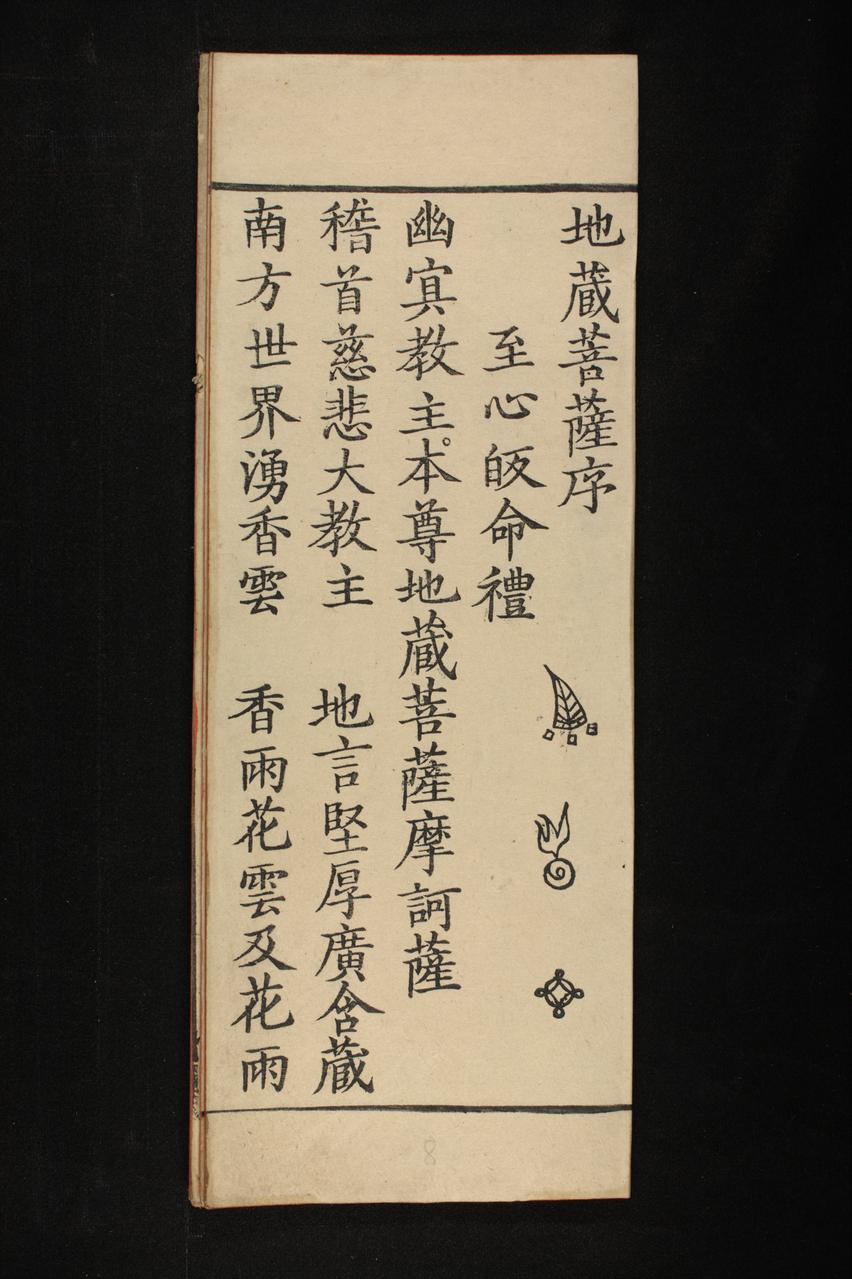 地蔵菩薩序
至心皈命禮
幽寘教主。本尊地蔵菩薩摩訶薩
稽首慈悲大教主　地言堅厚廣含蔵
南方世界湧香雲　香雨花雲及花雨
8